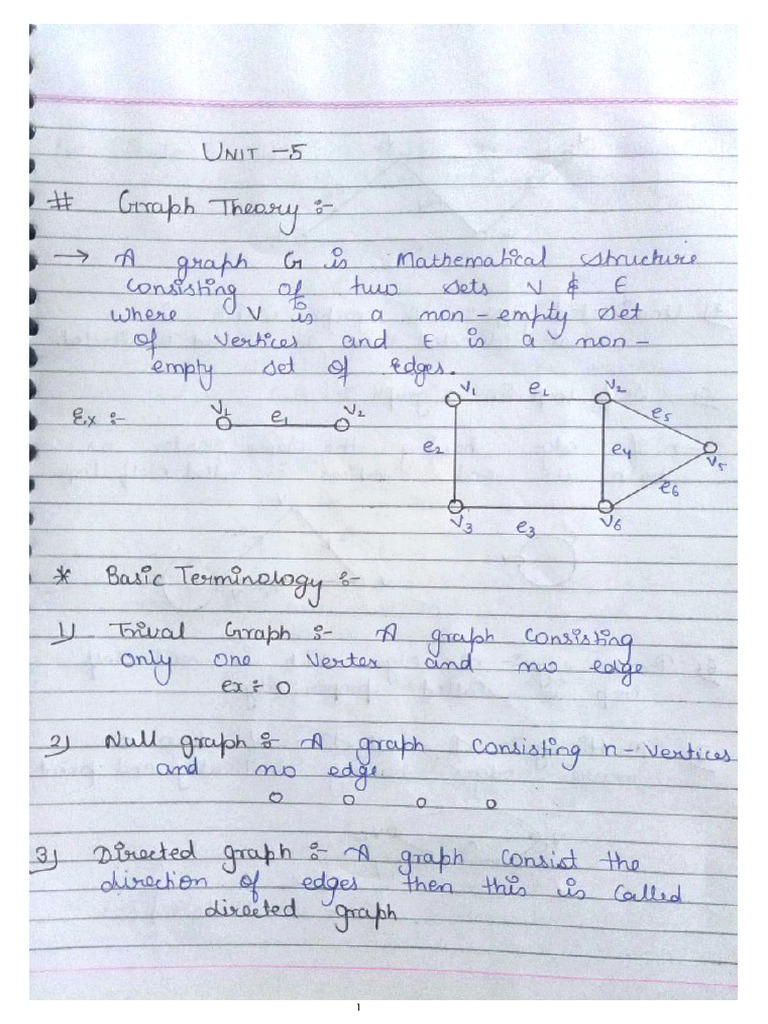 UNIT -5
# Graph Theory :-
→ A graph G is Mathematical structure
consisting of two sets V & E
where V is to a non-empty set
of vertices and E is a non-
empty set of edges.
Ex :- V1 e1 V2
V1 e1 V2
e5
e2 e4 V5
e6
V3 e3 V6
* Basic Terminology :-
1) Trival Graph :- A graph consisting
only one vertex and no edge
ex ÷ O
2) Null graph :- A graph consisting n-vertices
and no edge.
3) Directed graph :- A graph consist the
direction of edges then this is called
directed graph
1